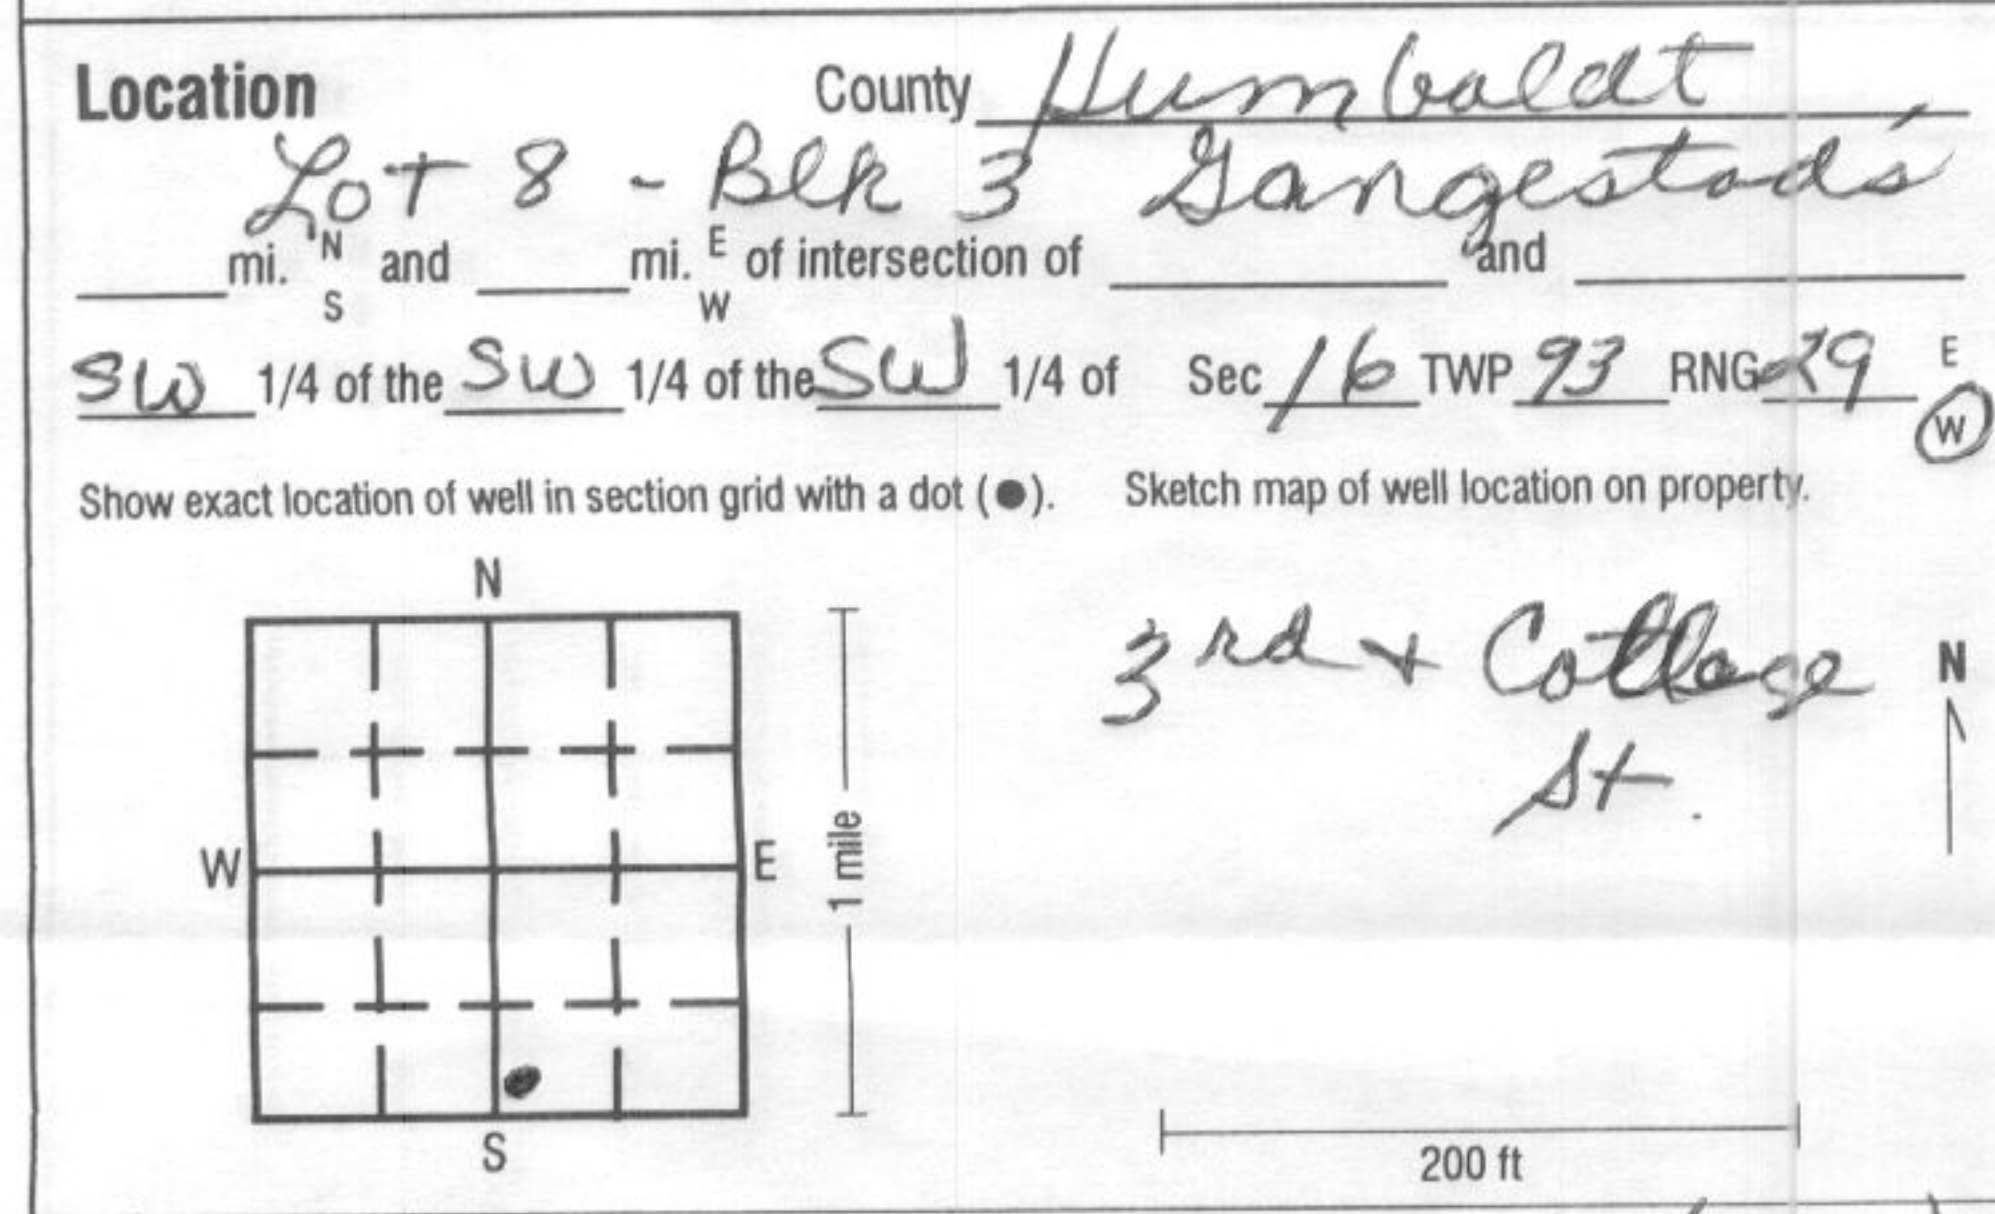 Location County Humboldt
Lot 8 - Blk 3 Gangestad's
mi. N and mi. E of intersection of and
S W
SW 1/4 of the SW 1/4 of the SW 1/4 of Sec 16 TWP 93 RNG 29 E
W
Show exact location of well in section grid with a dot (●). Sketch map of well location on property.
N
3rd + Cottage N
St.
W E 1 mile
S
200 ft